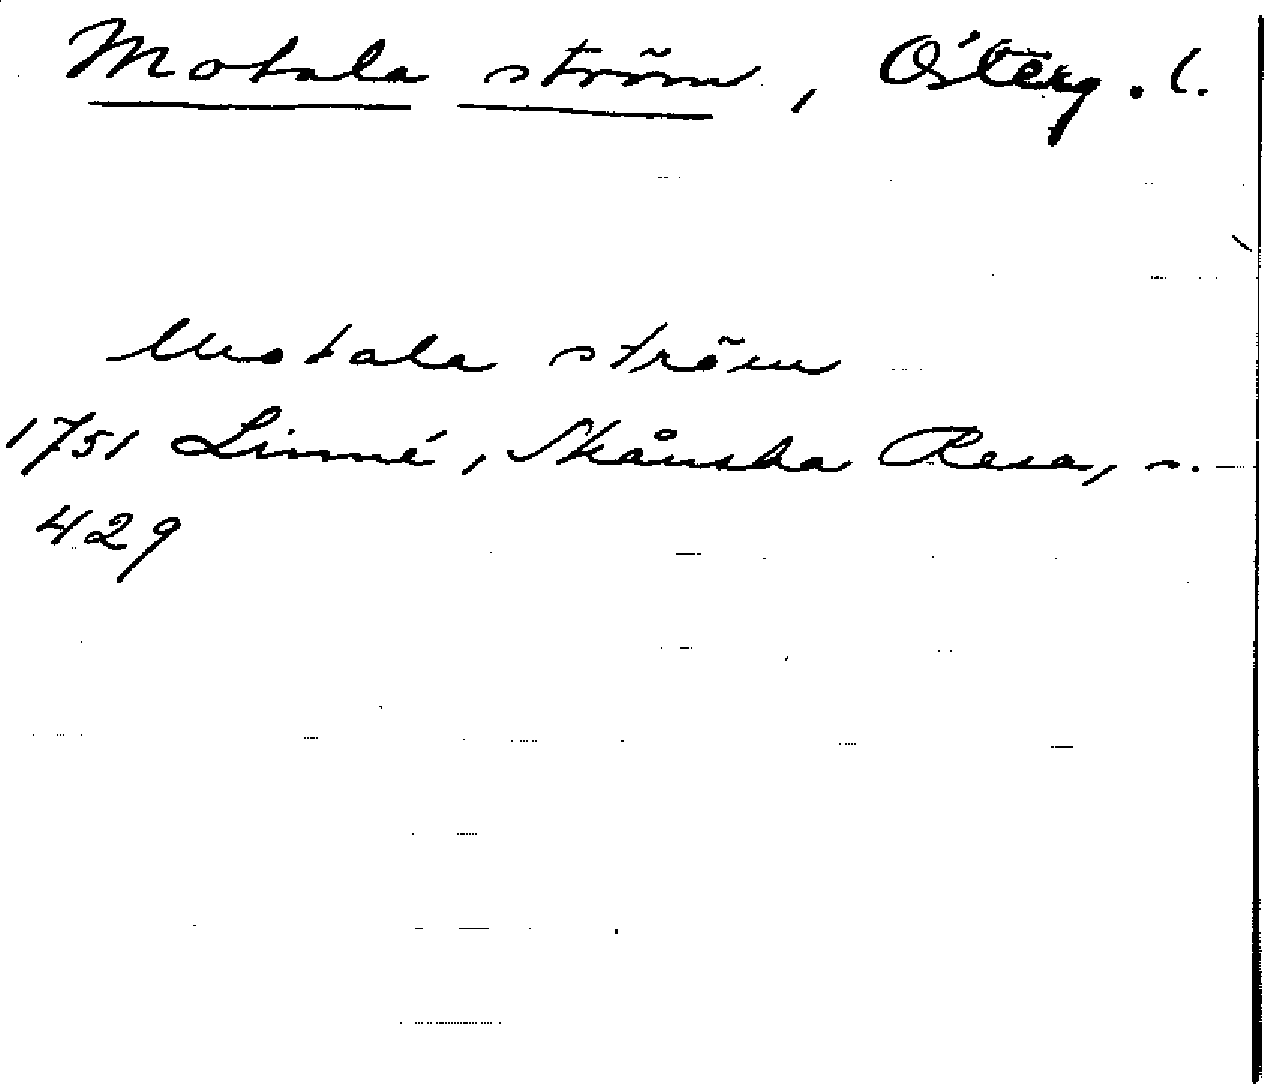 Motala ström, Österg. l.
Motala ström
1751 Linné, Skånska Resa, s.
429